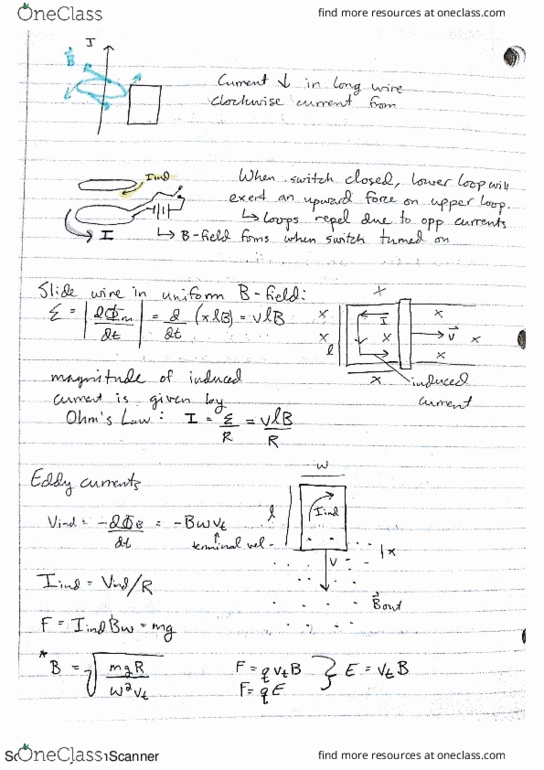 OneClass
find more resources at oneclass.com
I
B
Current ↓ in long wire
clockwise current from
Iind
I
When switch closed, lower loop will
exert an upward force on upper loop.
↳ loops repel due to opp currents
↳ B-field foms when switch turned on
Slide wire in uniform B-field:
Ɛ = |dΦm/dt| = d/dt (xlB) = vlB
x
x x
I
v
x x
l
x
x
induced
current
magnitude of induced
current is given by
Ohm's Law: I = Ɛ/R = vlB/R
Eddy currents
w
l
Iind
Vind = -dΦB/dt = -Bwvt
terminal vel.
x
v
Bout
Iind = Vind/R
F = IindBw = mg
* B = √(mgR/w²vt)
F = qvtB
F = qE
} E = vtB
OneClass
Scanner
find more resources at oneclass.com